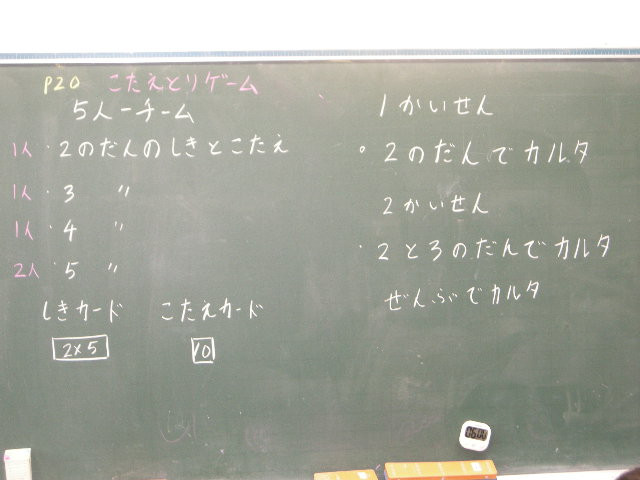 P20 こたえとりゲーム
5人一チーム
1人 ・2のだんのしきとこたえ
1人 ・3 〃
1人 ・4 〃
2人 ・5 〃
しきカード こたえカード
2×5 10
1かいせん
・2のだんでカルタ
2かいせん
・2と3のだんでカルタ
ぜんぶでカルタ